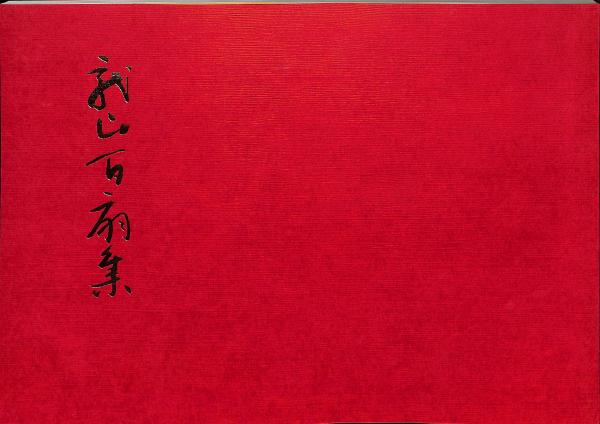 龍山百扇集